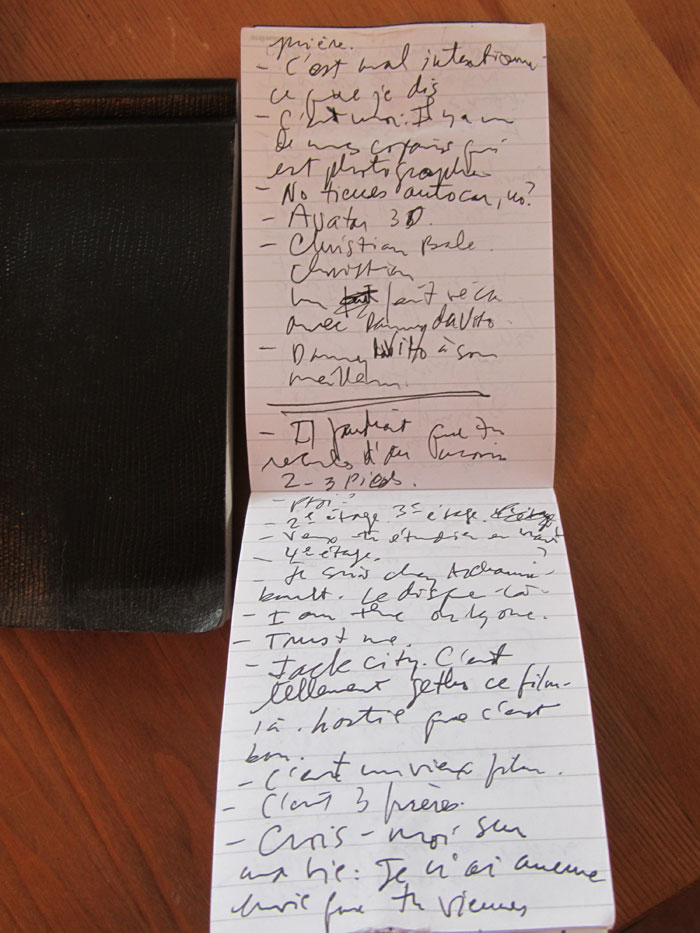 prière.
- C'est mal intentionné
ce que je dis
- C'est moi: Il y a un
de mes copains qui
est photographe
- No tienes autocar, no?
- Avatar 3D.
- Christian Bale.
Christian
un fait vécu
avec Danny daVito.
- Danny à son
meilleur.
- Il faudrait que tu
recules d'au moins
2-3 pieds.
- Ptoi?
- 2e étage 3e étage
- Veux-tu étudier en haut?
- 4e étage.
- Je suis chez Archam-
bault. Le disque-là.
- I am the only one.
- Trust me.
- Jack City. C'est
tellement getho ce film-
là. hostie que c'est
bon.
- C'est un vieux film.
- C'est 3 frères.
- Crois-moi sur
ma vie: Je n'ai aucune
envie que tu viennes